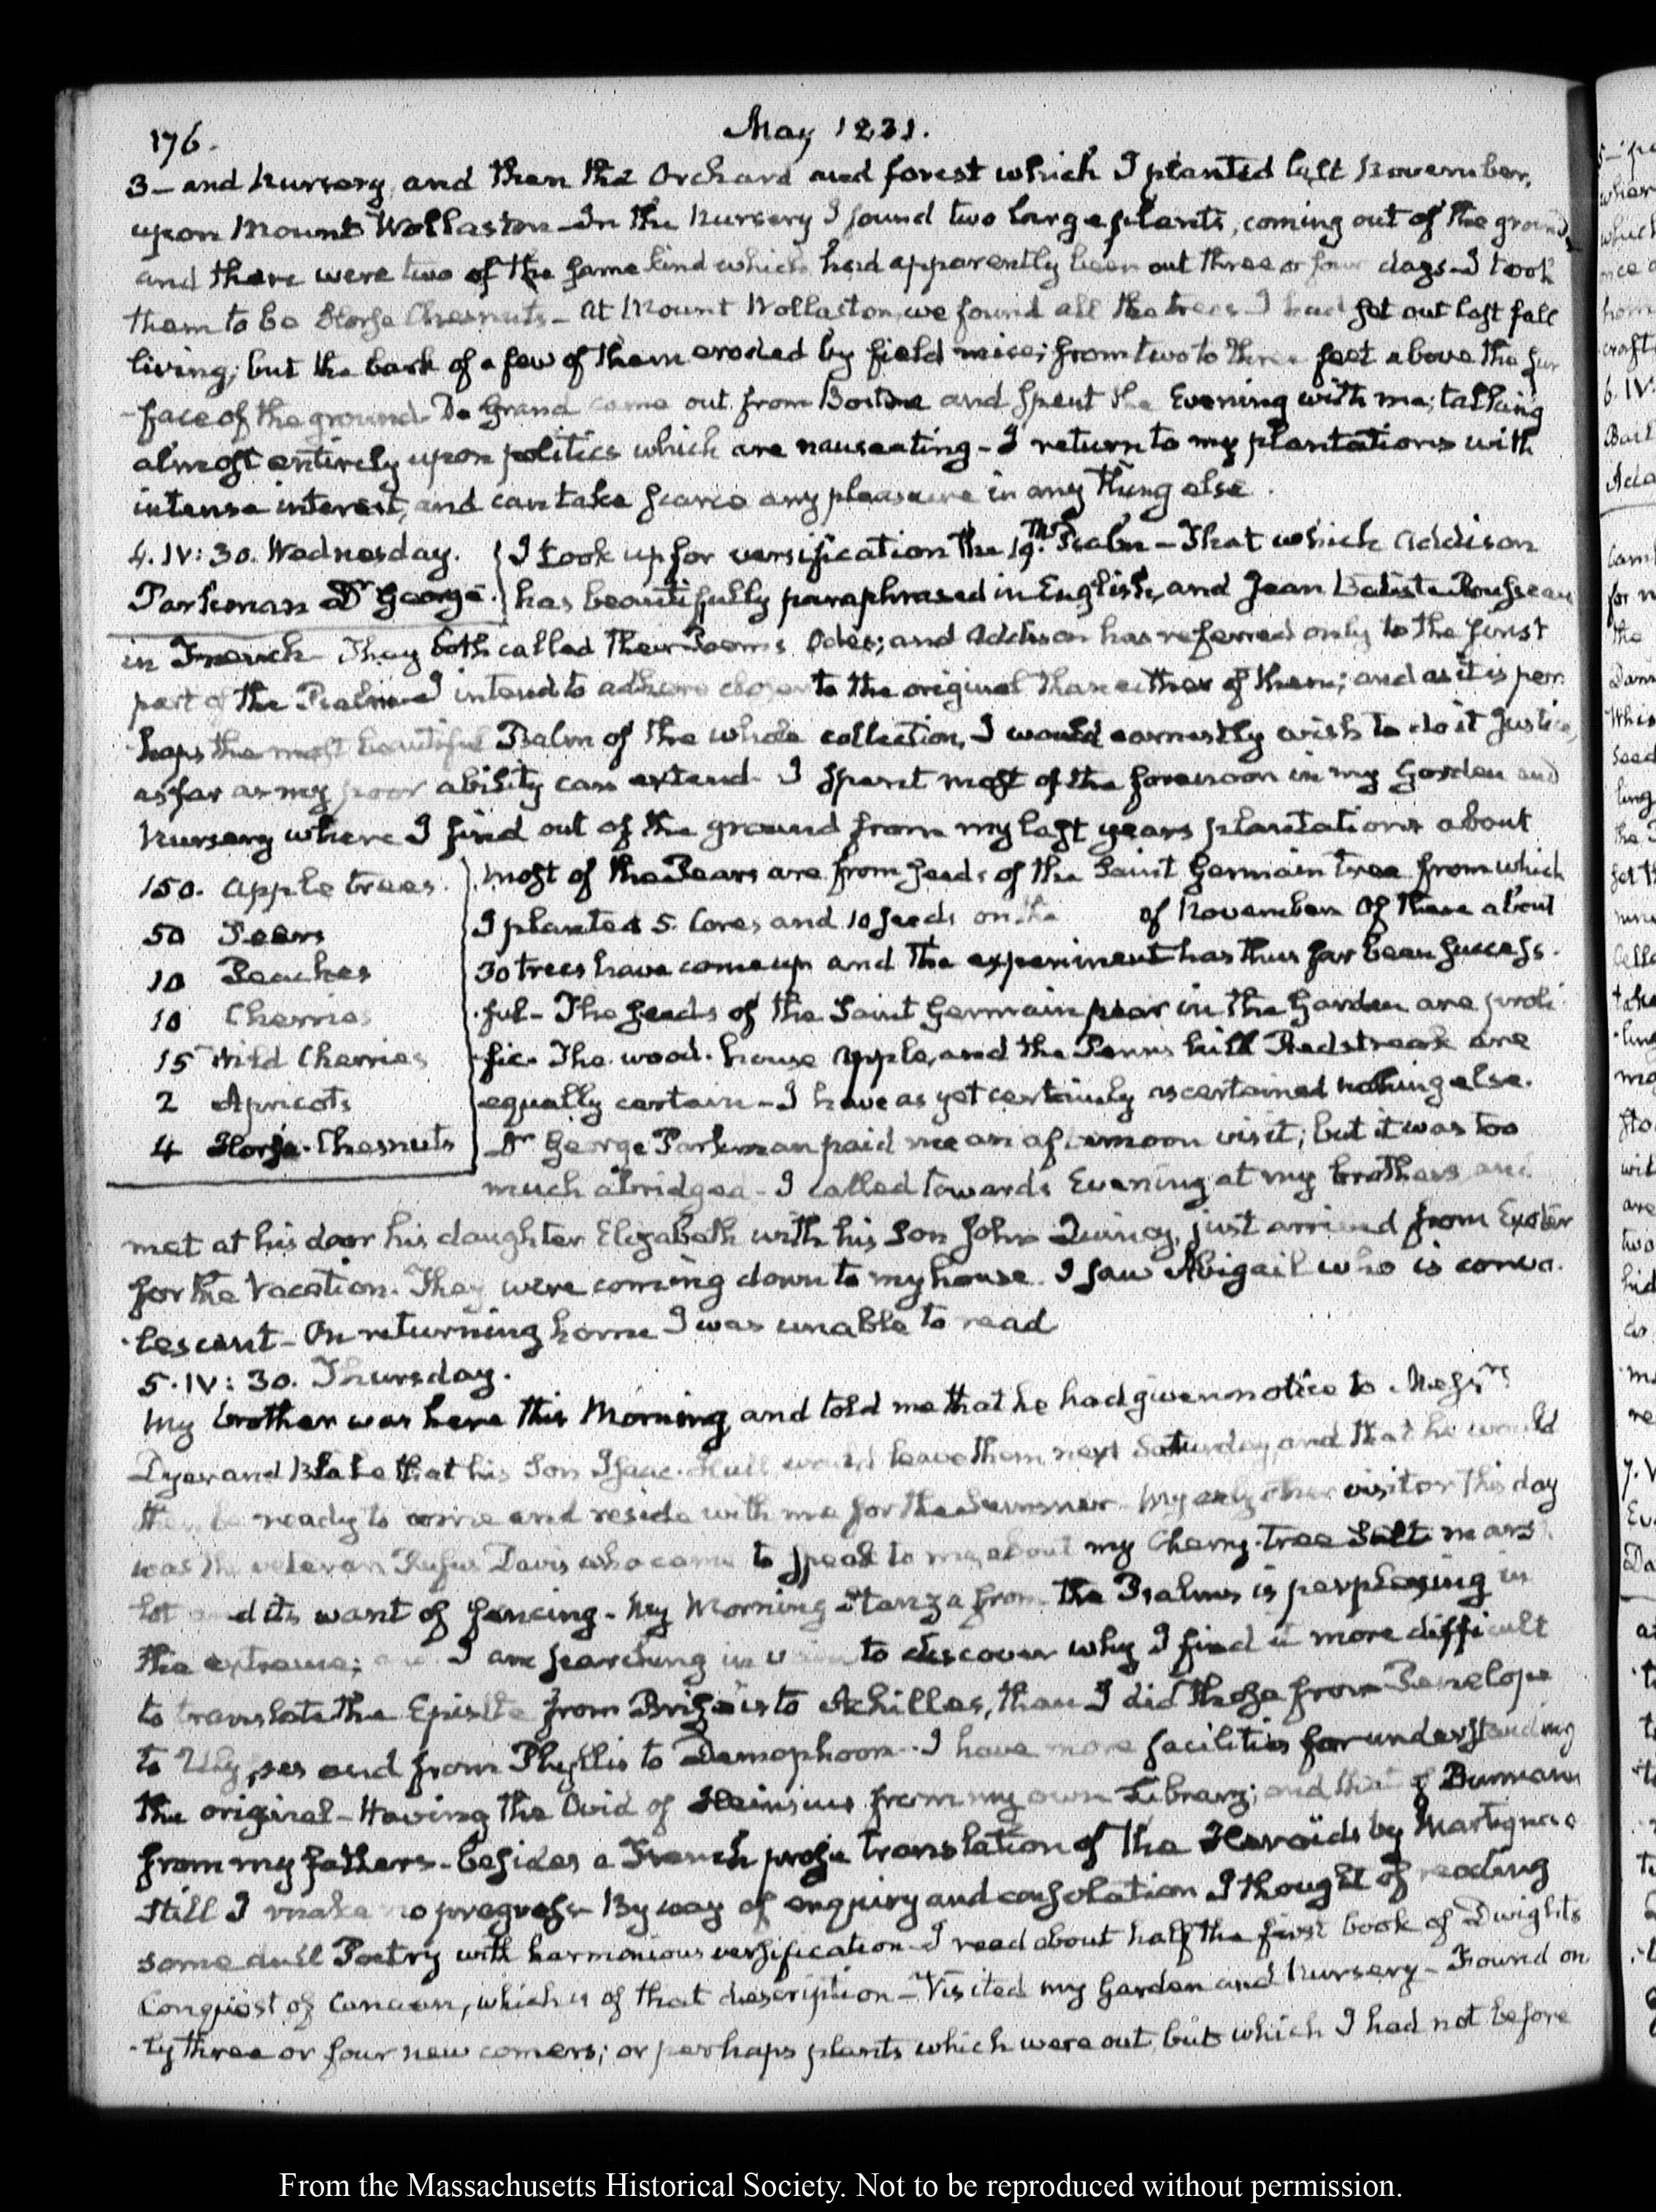 176.
May 1831.
3 — and Nursery, and then the Orchard and forest which I planted last November,
upon Mount Wollaston — In the Nursery I found two large plants, coming out of the ground
and there were two of the same kind which had apparently been out three or four days — I took
them to be Horse Chesnuts — At Mount Wollaston, we found all the trees I had set out last fall
living; but the bark of a few of them eroded by field mice; from two to three feet above the sur
-face of the ground — De Grand came out from Boston and spent the Evening with me; talking
almost entirely upon politics which are nauseating — I return to my plantations with
intense interest, and can take scarce any pleasure in any thing else.
4. IV: 30. Wednesday.
Parkman Dr George.
I took up for versification the 19th. Psalm — That which Addison
has beautifully paraphrased in English, and Jean Batiste Rousseau
in French — They both called their Poems Odes; and Addison has referred only to the first
part of the Psalm — I intend to adhere closer to the original than either of them; and as it is per
-haps the most beautiful Psalm of the whole collection, I would earnestly wish to do it justice,
as far as my poor ability can extend — I spent most of the forenoon in my Garden and
Nursery where I find out of the ground from my last years plantations about
150. Apple trees.
50 Pears
10 Peaches
10 Cherries
15 Wild Cherries
2 Apricots
4 Horse-Chesnuts
most of the Pears are from seeds of the Saint Germain tree from which
I planted 5. Cores and 10 seeds on the of November Of these about
30 trees have come up and the experiment has thus far been success-
-ful — The seeds of the Saint Germain pear in the Garden are proli
-fic. The wood-house Apple, and the Penns hill Redstreak are
equally certain — I have as yet certainly ascertained nothing else.
Dr George Parkman paid me an afternoon visit; but it was too
much abridged — I called towards Evening at my brothers, and
met at his door his daughter Elizabeth with his Son John Quincy, just arrived from Exeter
for the Vacation. They were coming down to my house. I saw Abigail who is conva-
-lescent — On returning home I was unable to read
5. IV: 30. Thursday.
My brother was here this Morning, and told me that he had given notice to Messrs
Dyer and Blake that his Son Isaac Hull would leave them next Saturday, and that he would
then be ready to come and reside with me for the Summer. My only other visitor this day
was the veteran Rufus Davis who came to speak to me about my Cherry-tree Salt mars
lot and its want of fencing — My Morning Stanza from the Psalms is perplexing in
the extreme; and I am searching in vain to discover why I find it more difficult
to translate the Epistle from Briseis to Achilles, than I did those from Penelope
to Ulysses and from Phyllis to Demophoon. I have more facilities for understanding
the original — Having the Ovid of Heinsius from my own Library; and that of Burmann
from my fathers — besides a French prose translation of the Heroïds by Martignac
Still I make no progress — By way of enquiry and consolation I thought of reading
some dull Poetry with harmonious versification — I read about half the first book of Dwights
Conquest of Canaan, which is of that description — Visited my Garden and Nursery — Found on
-ly three or four new comers; or perhaps plants which were out, but which I had not before
From the Massachusetts Historical Society. Not to be reproduced without permission.